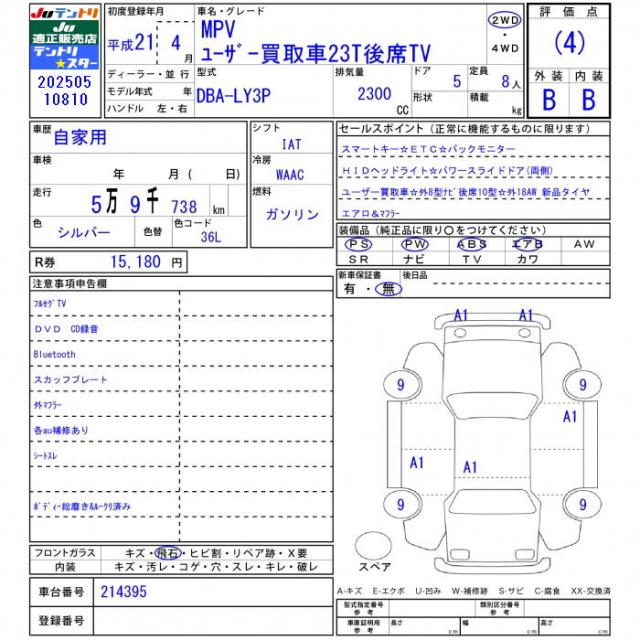 Juテントリ
Ju
適正販売店
テントリ
★スター
202505
10810
初度登録年月
平成21 4月
ディーラー・並 行
モデル年式 年
ハンドル 左・右
車名・グレード
MPV
ﾕｰｻﾞｰ買取車23T後席TV
2WD
・
4WD
型式
DBA-LY3P
排気量
2300
CC
ドア
5
形状
定員
8人
積載
kg
評 価 点
(4)
外 装 内 装
B B
車歴
自家用
車検
年 月 ( 日)
走行
5万 9千 738 km
色
シルバー
色替
色コード
36L
シフト
IAT
冷房
WAAC
燃料
ガソリン
R券 15,180 円
セールスポイント (正常に機能するものに限ります)
スマートキー☆ETC☆バックモニター
HIDヘッドライト☆パワースライドドア(両側)
ユーザー買取車☆外8型ﾅﾋﾞ後席10型☆外18AW 新品タイヤ
エアロ＆ﾏﾌﾗｰ
装備品 (純正品に限り〇をつけてください)
PS PW ABS エアB AW
SR ナビ TV カワ
新車保証書
有・無
後日品
注意事項申告欄
ﾌﾙｾｸﾞTV
DVD CD録音
Bluetooth
スカッフプレート
外ﾏﾌﾗｰ
各au補修あり
ｼｰﾄｽﾚ
ﾎﾞﾃﾞｨｰ総磨き&ﾙｰｸﾘ済み
A1 A1
9 9
A1
A1 A1
9 9
スペア
フロントガラス キズ・飛石・ヒビ割・リペア跡・X要
内装 キズ・汚レ・コゲ・穴・スレ・キレ・破レ
車台番号 214395
登録番号
A-キズ E-エクボ U-凹み W-補修跡 S-サビ C-腐食 XX-交換済
型式指定番号 類別区分番号
車庫証明用
参考
長さ cm 幅 cm 高さ cm